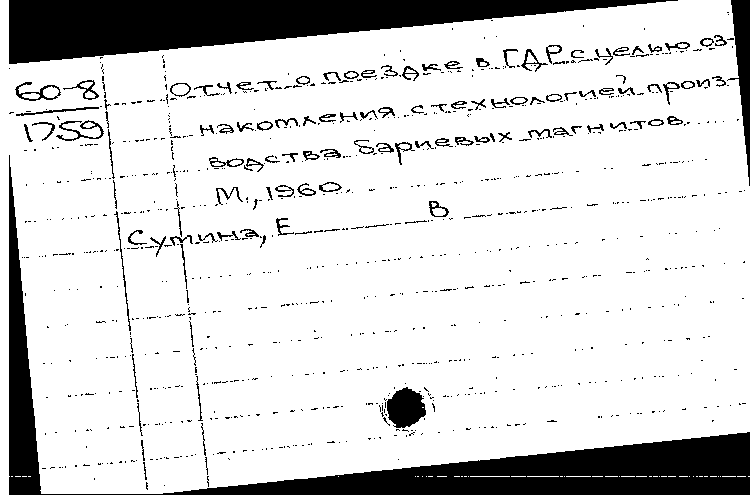 60-8
1759
Отчет о поездке в ГДР с целью оз-
накомления с технологией произ-
водства бариевых магнитов.
М., 1960.
Сутина, Е В